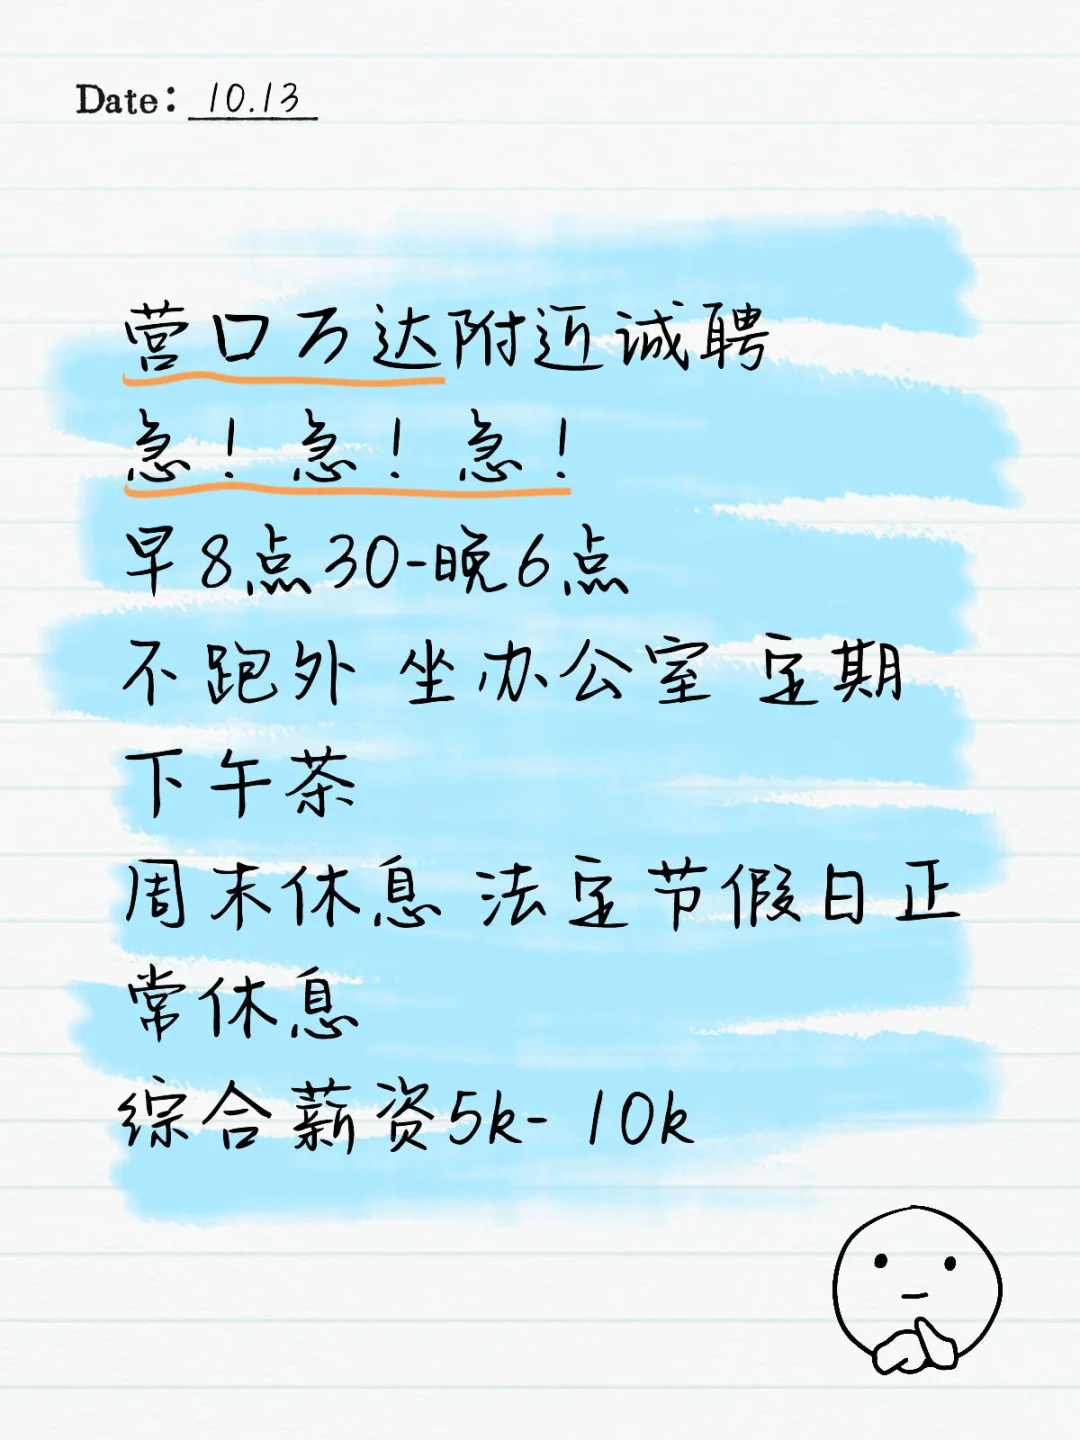 Date: 10.13
营口万达附近诚聘
急！急！急！
早8点30-晚6点
不跑外 坐办公室 定期
下午茶
周末休息 法定节假日正
常休息
综合薪资5k- 10k